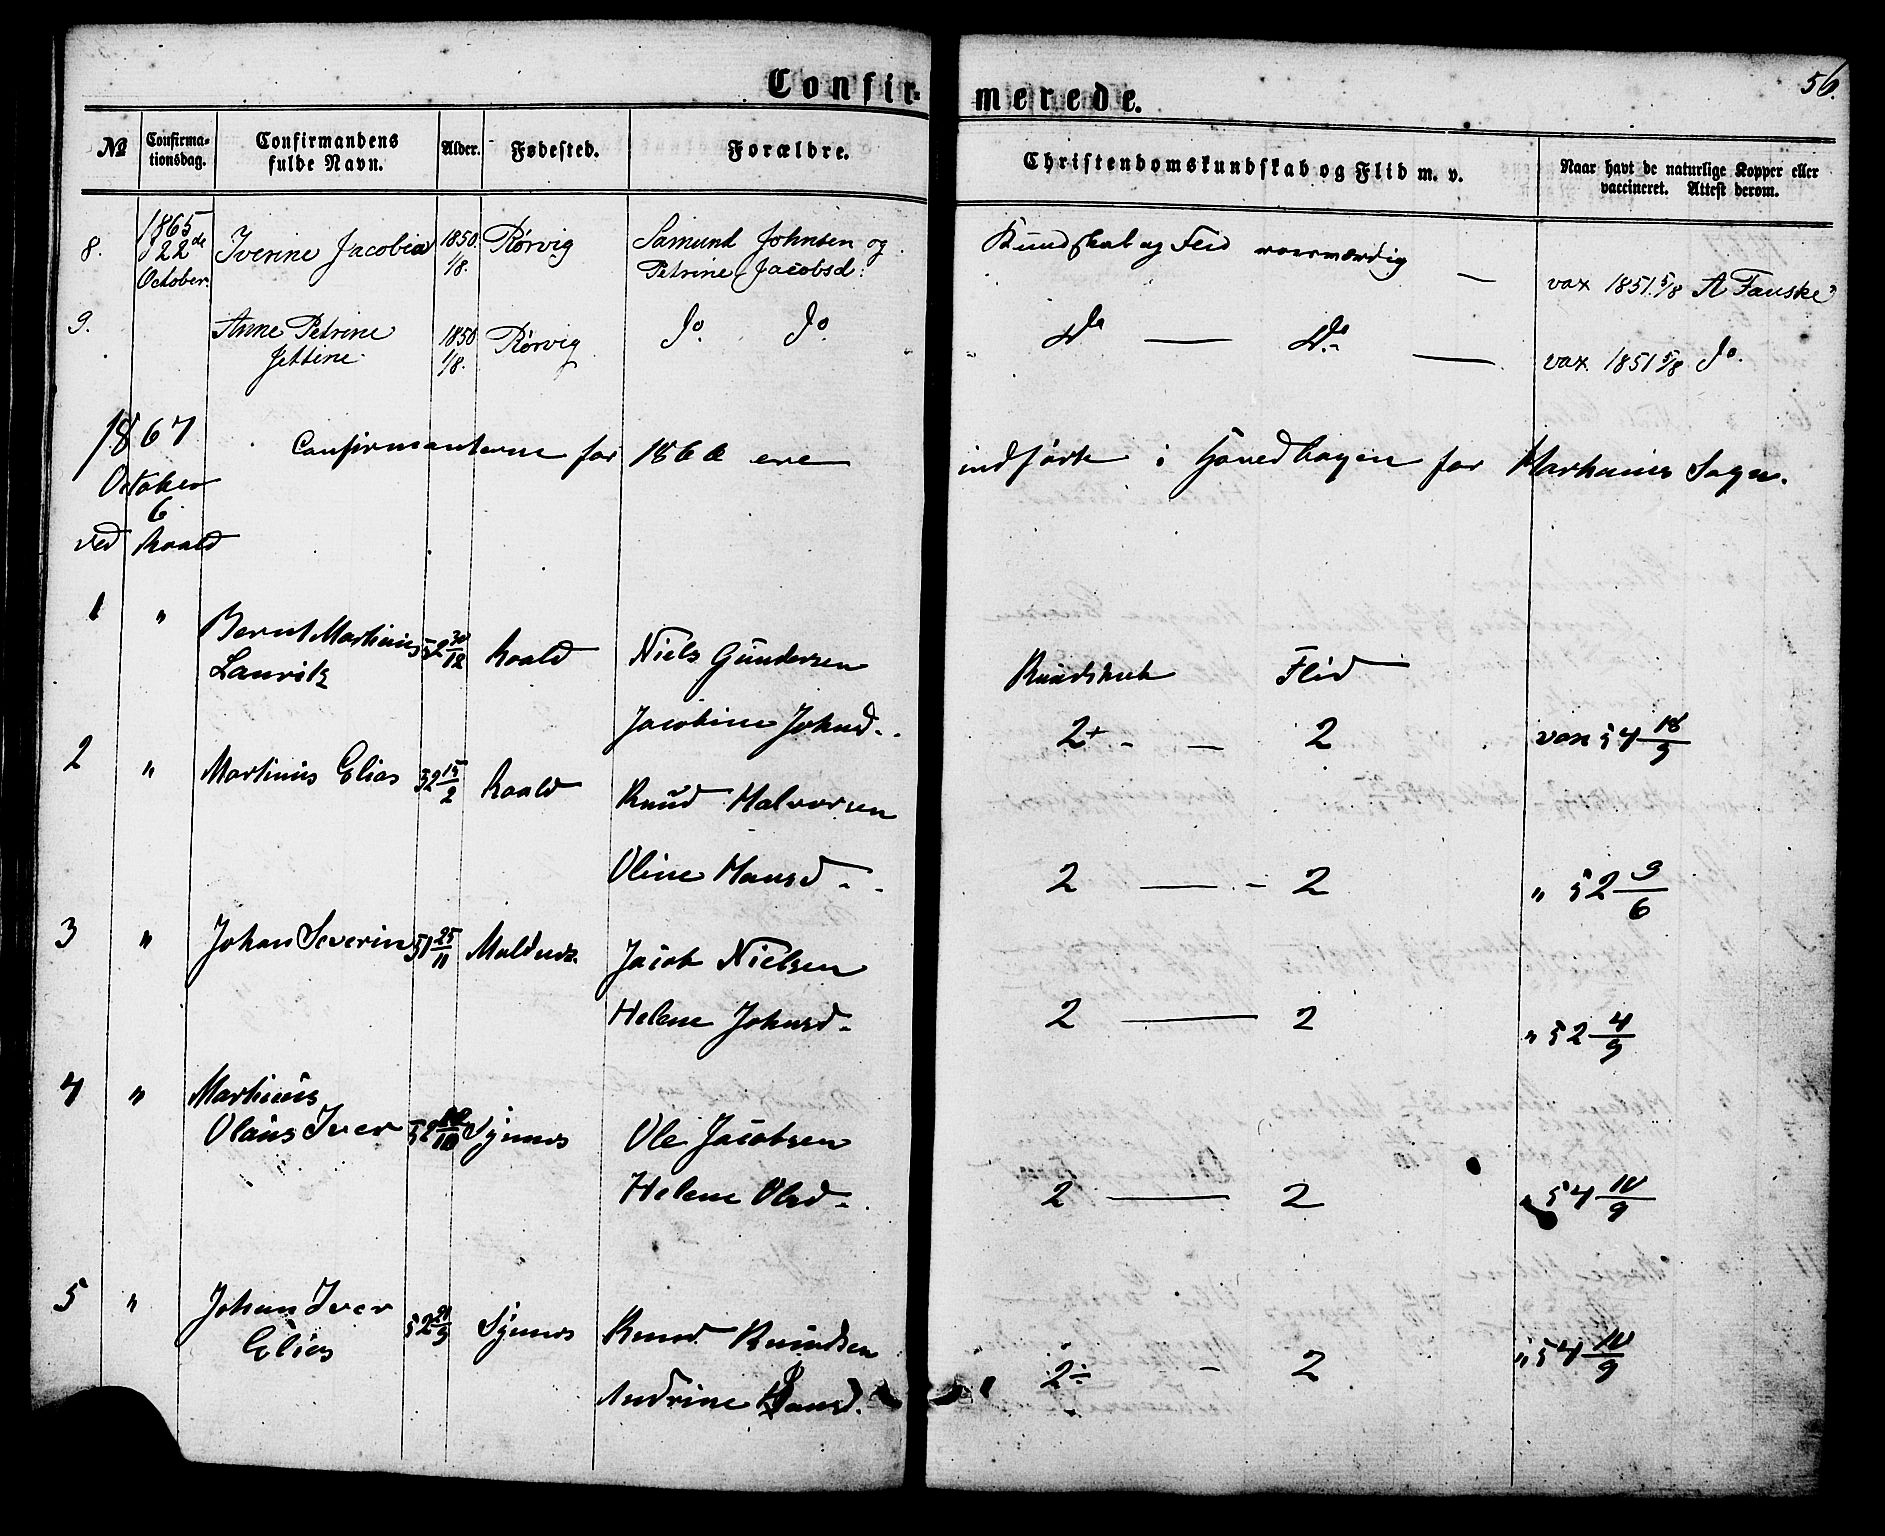 Confirmerede.
56.
№ Confirmationsdag. Confirmandens fulde Navn. Alder. Fødested. Forældre. Christendomskundskab og Flid m. v. Naar havt de naturlige Kopper eller vaccineret. Attest derom.
8. 1865 22de October. Iverine Jacobia 1850 1/8. Rørvig Samund Johnsen og Kundskab og Flid
Petrine Jacobsd: — vax 1851 5/8 A Fauske
9. Anne Petrine Jettine 1850 1/8. Rørvig Do. Do. Do — Do. — vax 1851 5/8 Do.
1867 Confirmanterne for 1866 ere indførte i Hovedbogen for Sogn.
October
6
ved Roald
1 " Bernt Martinus 52 30/12 Roald Niels Gundersen Kundskab Flid
Laurik
Jacobine Johnsd. 2+ - — 2 vax 54 18/9
2 " Martinus Elias 52 15/2 Roald Knud Halvorsen
Oline Hansd. 2 — - 2 " 52 9/6
3 " Johan Severin 51 25/11 Moldnes. Jacob Nielsen
Helene Johnsd. 2 — 2 " 52 4/9
4 " Martinus
Olaus Iver 52 Synnes Ole Jacobsen
Helene Olsd. 2 — 2 " 54 10/9
5 " Johan Iver 52 21/9 Synnes Knud Knudsen
Elias
Andrine Hansd. 2÷ - 2 " 54 10/9